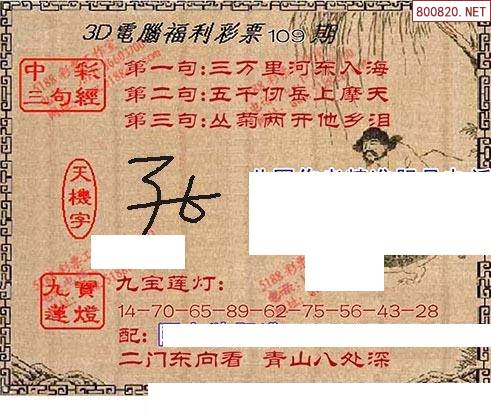 800820.NET
3D電腦福利彩票109期
中彩三句經
第一句:三万里河东入海
第二句:五千仞岳上摩天
第三句:丛菊两开他乡泪
天機字
九寳蓮燈
九宝莲灯:
14-70-65-89-62-75-56-43-28
配:
二门东向看 青山八处深